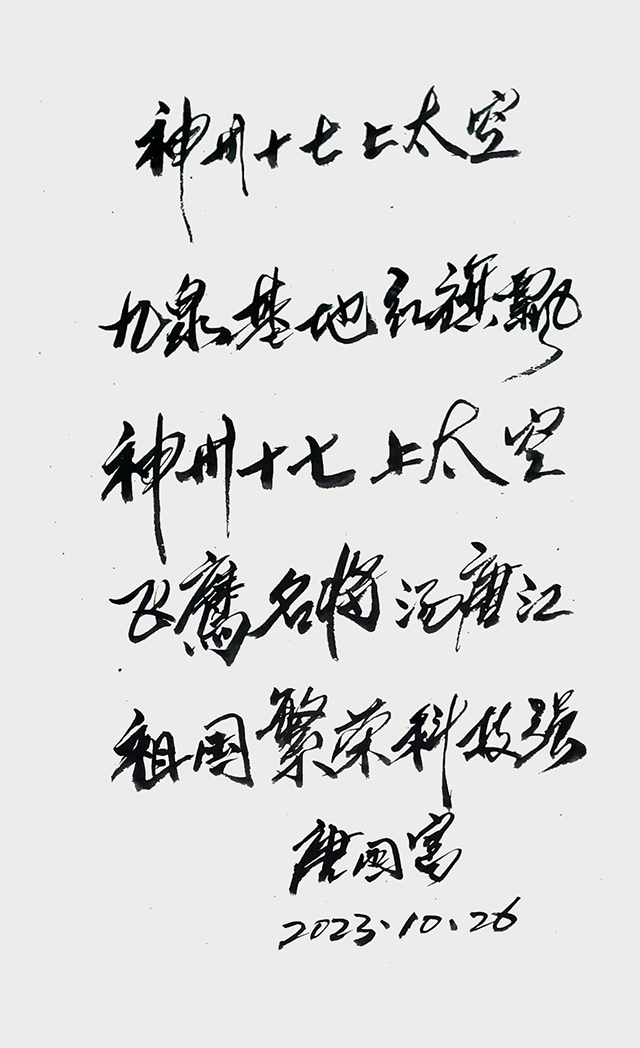 神州十七上太空
九泉基地红旗飘
神州十七上太空
飞鹰名将汤唐江
祖国繁荣科技强
唐国富
2023.10.26